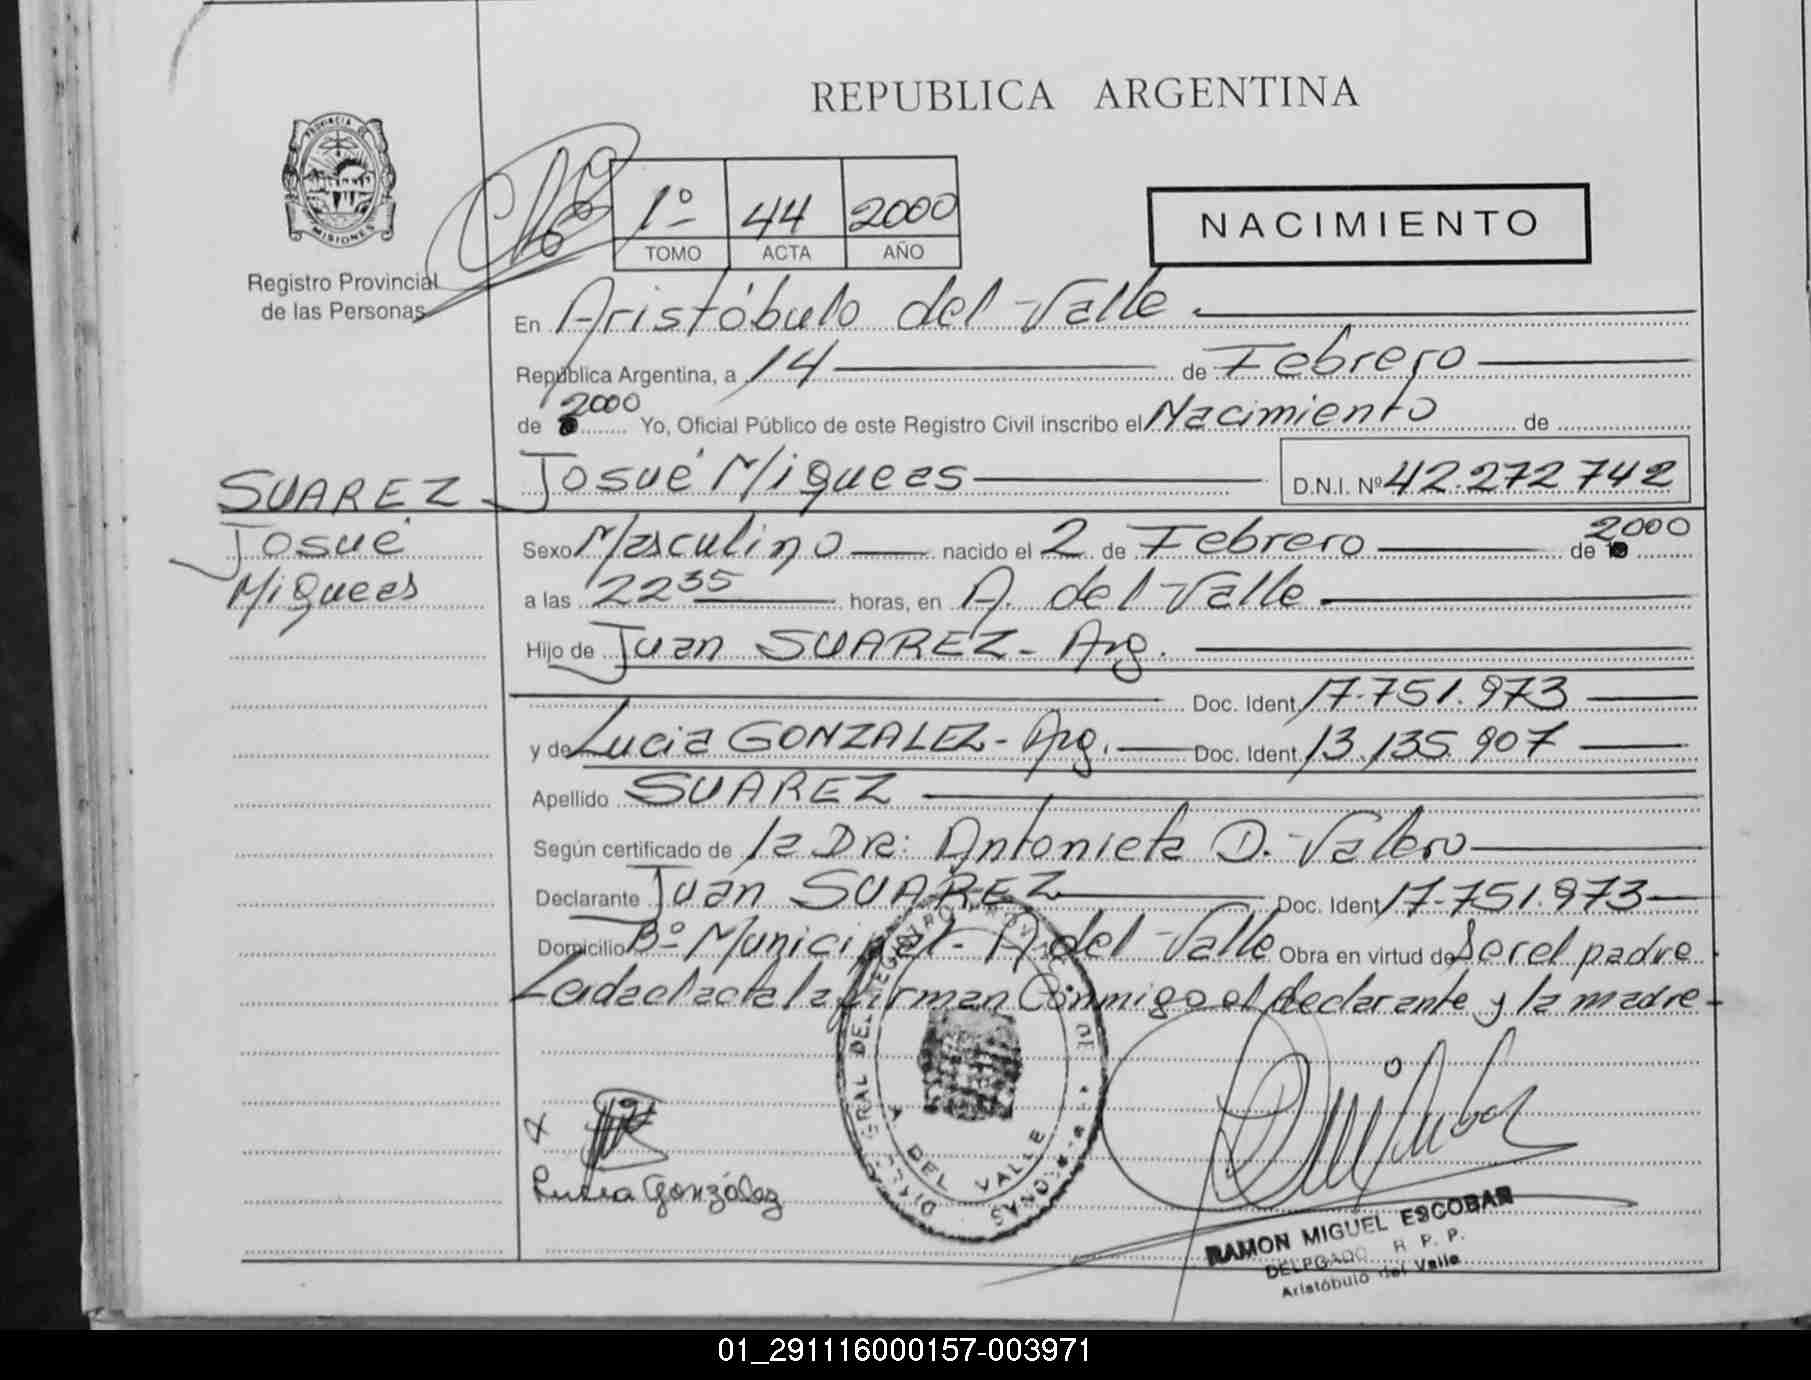 REPUBLICA ARGENTINA
PROVINCIA DE
MISIONES
Registro Provincial
de las Personas
1º 44 2000
TOMO ACTA AÑO
NACIMIENTO
En Aristóbulo del Valle
República Argentina, a 14 de Febrero
de 2000 Yo, Oficial Público de este Registro Civil inscribo el Nacimiento de
Josué Miqueas D.N.I. Nº 42.272.742
SUAREZ
Josué
Miqueas
Sexo Masculino nacido el 2 de Febrero de 2000
a las 22 35 horas, en A. del Valle
Hijo de Juan SUAREZ - Arg.
Doc. Ident. 17.751.973
y de Lucia GONZALEZ - Arg. Doc. Ident. 13.135.907
Apellido SUAREZ
Según certificado de la Dra: Antonieta D. Valero
Declarante Juan SUAREZ Doc. Ident. 17.751.973
Domicilio Bº Municipal - A del Valle Obra en virtud de Ser el padre
Leida el acta la firman Conmigo el declarante y la madre
A DEL VALLE
Lucia González
RAMON MIGUEL ESCOBAR
DELEGADO R. P. P.
Aristóbulo del Valle
01_291116000157-003971